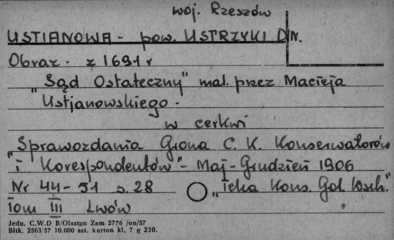 woj. Rzeszów
USTIANOWA - pow. USTRZYKI DN.
Obraz - z 1691 r
"Sąd Ostateczny" mal. przez Macieja
Ustjanowskiego -
w cerkwi
"Sprawozdania Grona C. K. Konserwatorów
i Korespondentów" - Maj - Grudzień 1906
Nr 44 - 51 s. 28 "Teka Kons. Gal. Wsch."
Tom III Lwów
Jedn. C.W.D B/Olsztyn Zam 2776/on/57
Bltk. 2563/57 10.000 szt. karton kl. 7 g 220.